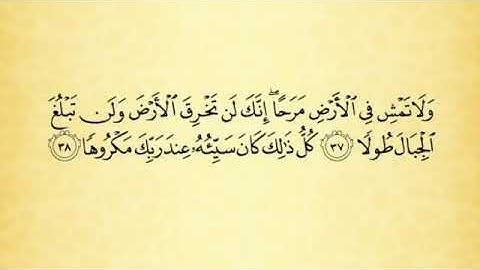 وَلَا تَمْشِ فِي ٱلْأَرْضِ مَرَحًاۖ إِنَّكَ لَن تَخْرِقَ ٱلْأَرْضَ وَلَن تَبْلُغَ
ٱلْجِبَالَ طُولًا ٣٧ كُلُّ ذَٰلِكَ كَانَ سَيِّئُهُۥ عِندَ رَبِّكَ مَكْرُوهًا ٣٨